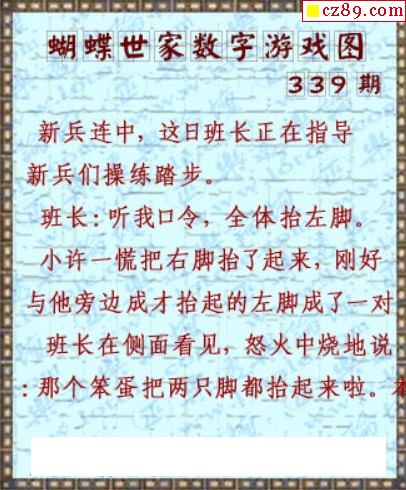 cz89.com
蝴蝶世家数字游戏图
339期
新兵连中，这日班长正在指导
新兵们操练踏步。
班长：听我口令，全体抬左脚。
小许一慌把右脚抬了起来，刚好
与他旁边成才抬起的左脚成了一对
班长在侧面看见，怒火中烧地说
：那个笨蛋把两只脚都抬起来啦。